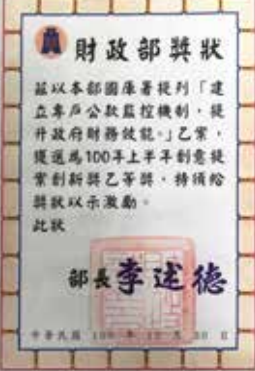 財政部獎狀
茲以本部國庫署提列「建
立專戶公款監控機制，提
升政府財務效能。」乙案，
獲選為100年上半年創意提
案創新獎乙等獎，特頒給
獎狀以示激勵。
此狀
部長李述德
中華民國 100 年 月 日